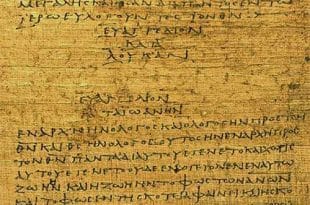 ΜΕΓΑΛΗCΚΑΙΗCΑΝΔΙΑΠΑΝΤΟCΕΝΤΩ
ΙΕΡΩΕΥΛΟΓΟΥΝΤΕCΤΟΝΘΝ
ΕΥΑΓΓΕΛΙΟΝ
ΚΑΤΑ
ΛΟΥΚΑΝ
ΕΥΑΓΓΕΛΙΟΝ
ΚΑΤΑΙΩΑΝΗΝ
ΕΝΑΡΧΗΗΝΟΛΟΓΟCΚΑΙΟΛΟΓΟCΗΝΠΡΟCΤΟΝ
ΘΝΚΑΙΘCΗΝΟΛΟΓΟCΟΥΤΟCΗΝΕΝΑΡΧΗΠΡΟC
ΤΟΝΘΝΠΑΝΤΑΔΙΑΥΤΟΥΕΓΕΝΕΤΟΚΑΙΧΩΡΙC
ΑΥΤΟΥΕΓΕΝΕΤΟΟΥΔΕΕΝΟΓΕΓΟΝΕΝΕΝΑΥΤΩ
ΖΩΗΗΝΚΑΙΗΖΩΗΗΝΤΟΦΩCΤΩΝΑΝΩΝ
ΚΑΙΤΟΦΩCΕΝΤΗCΚΟΤΙΑΦΑΙΝΕΙΚΑΙΗCΚΟ